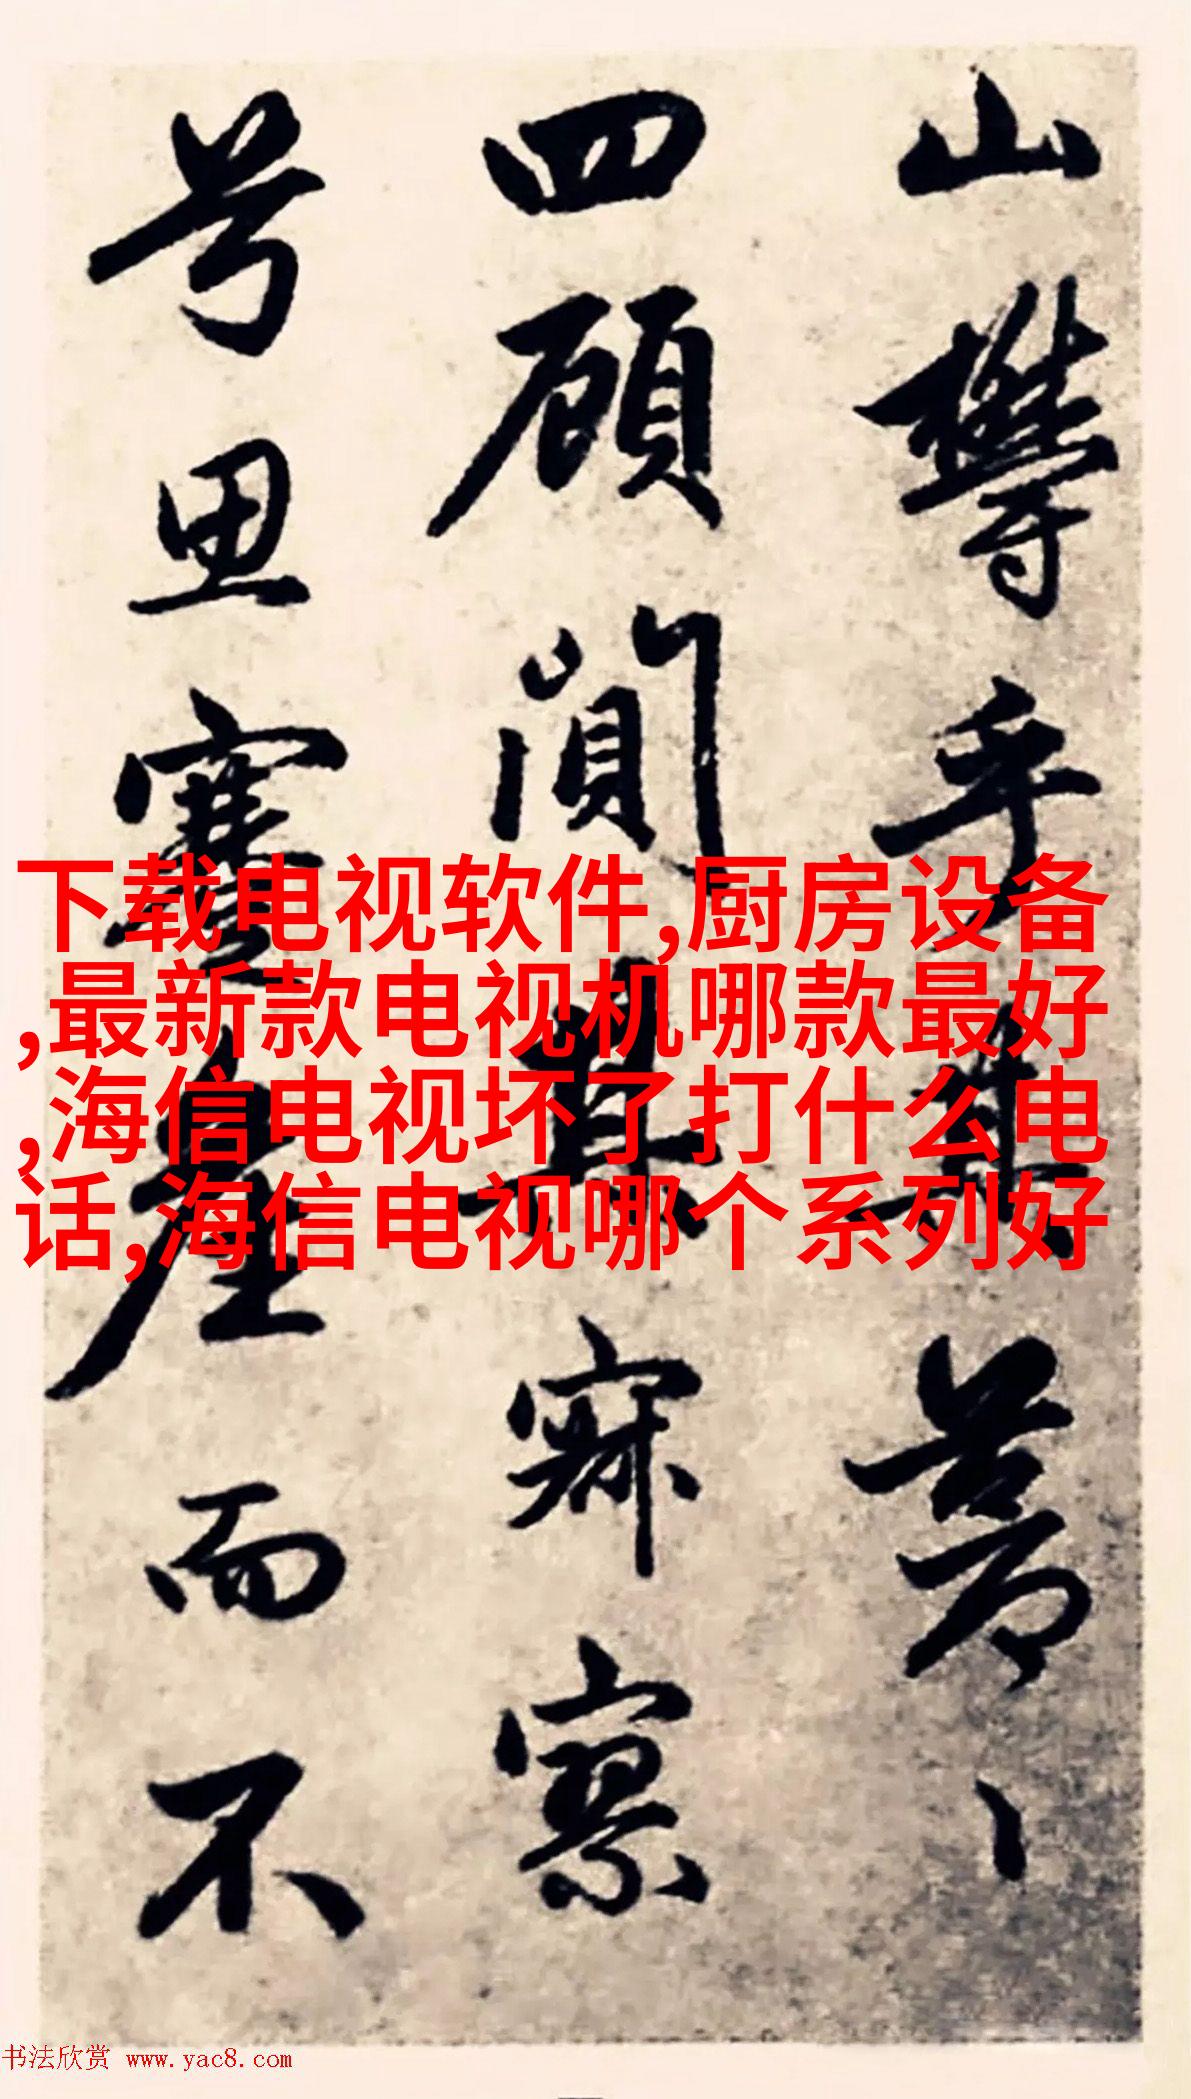 山欝乎其蒼〻
四顧闃其寂寥
兮思蹇產而不
下载电视软件,厨房设备
,最新款电视机哪款最好
,海信电视坏了打什么电
话,海信电视哪个系列好
书法欣赏 www.yac8.com